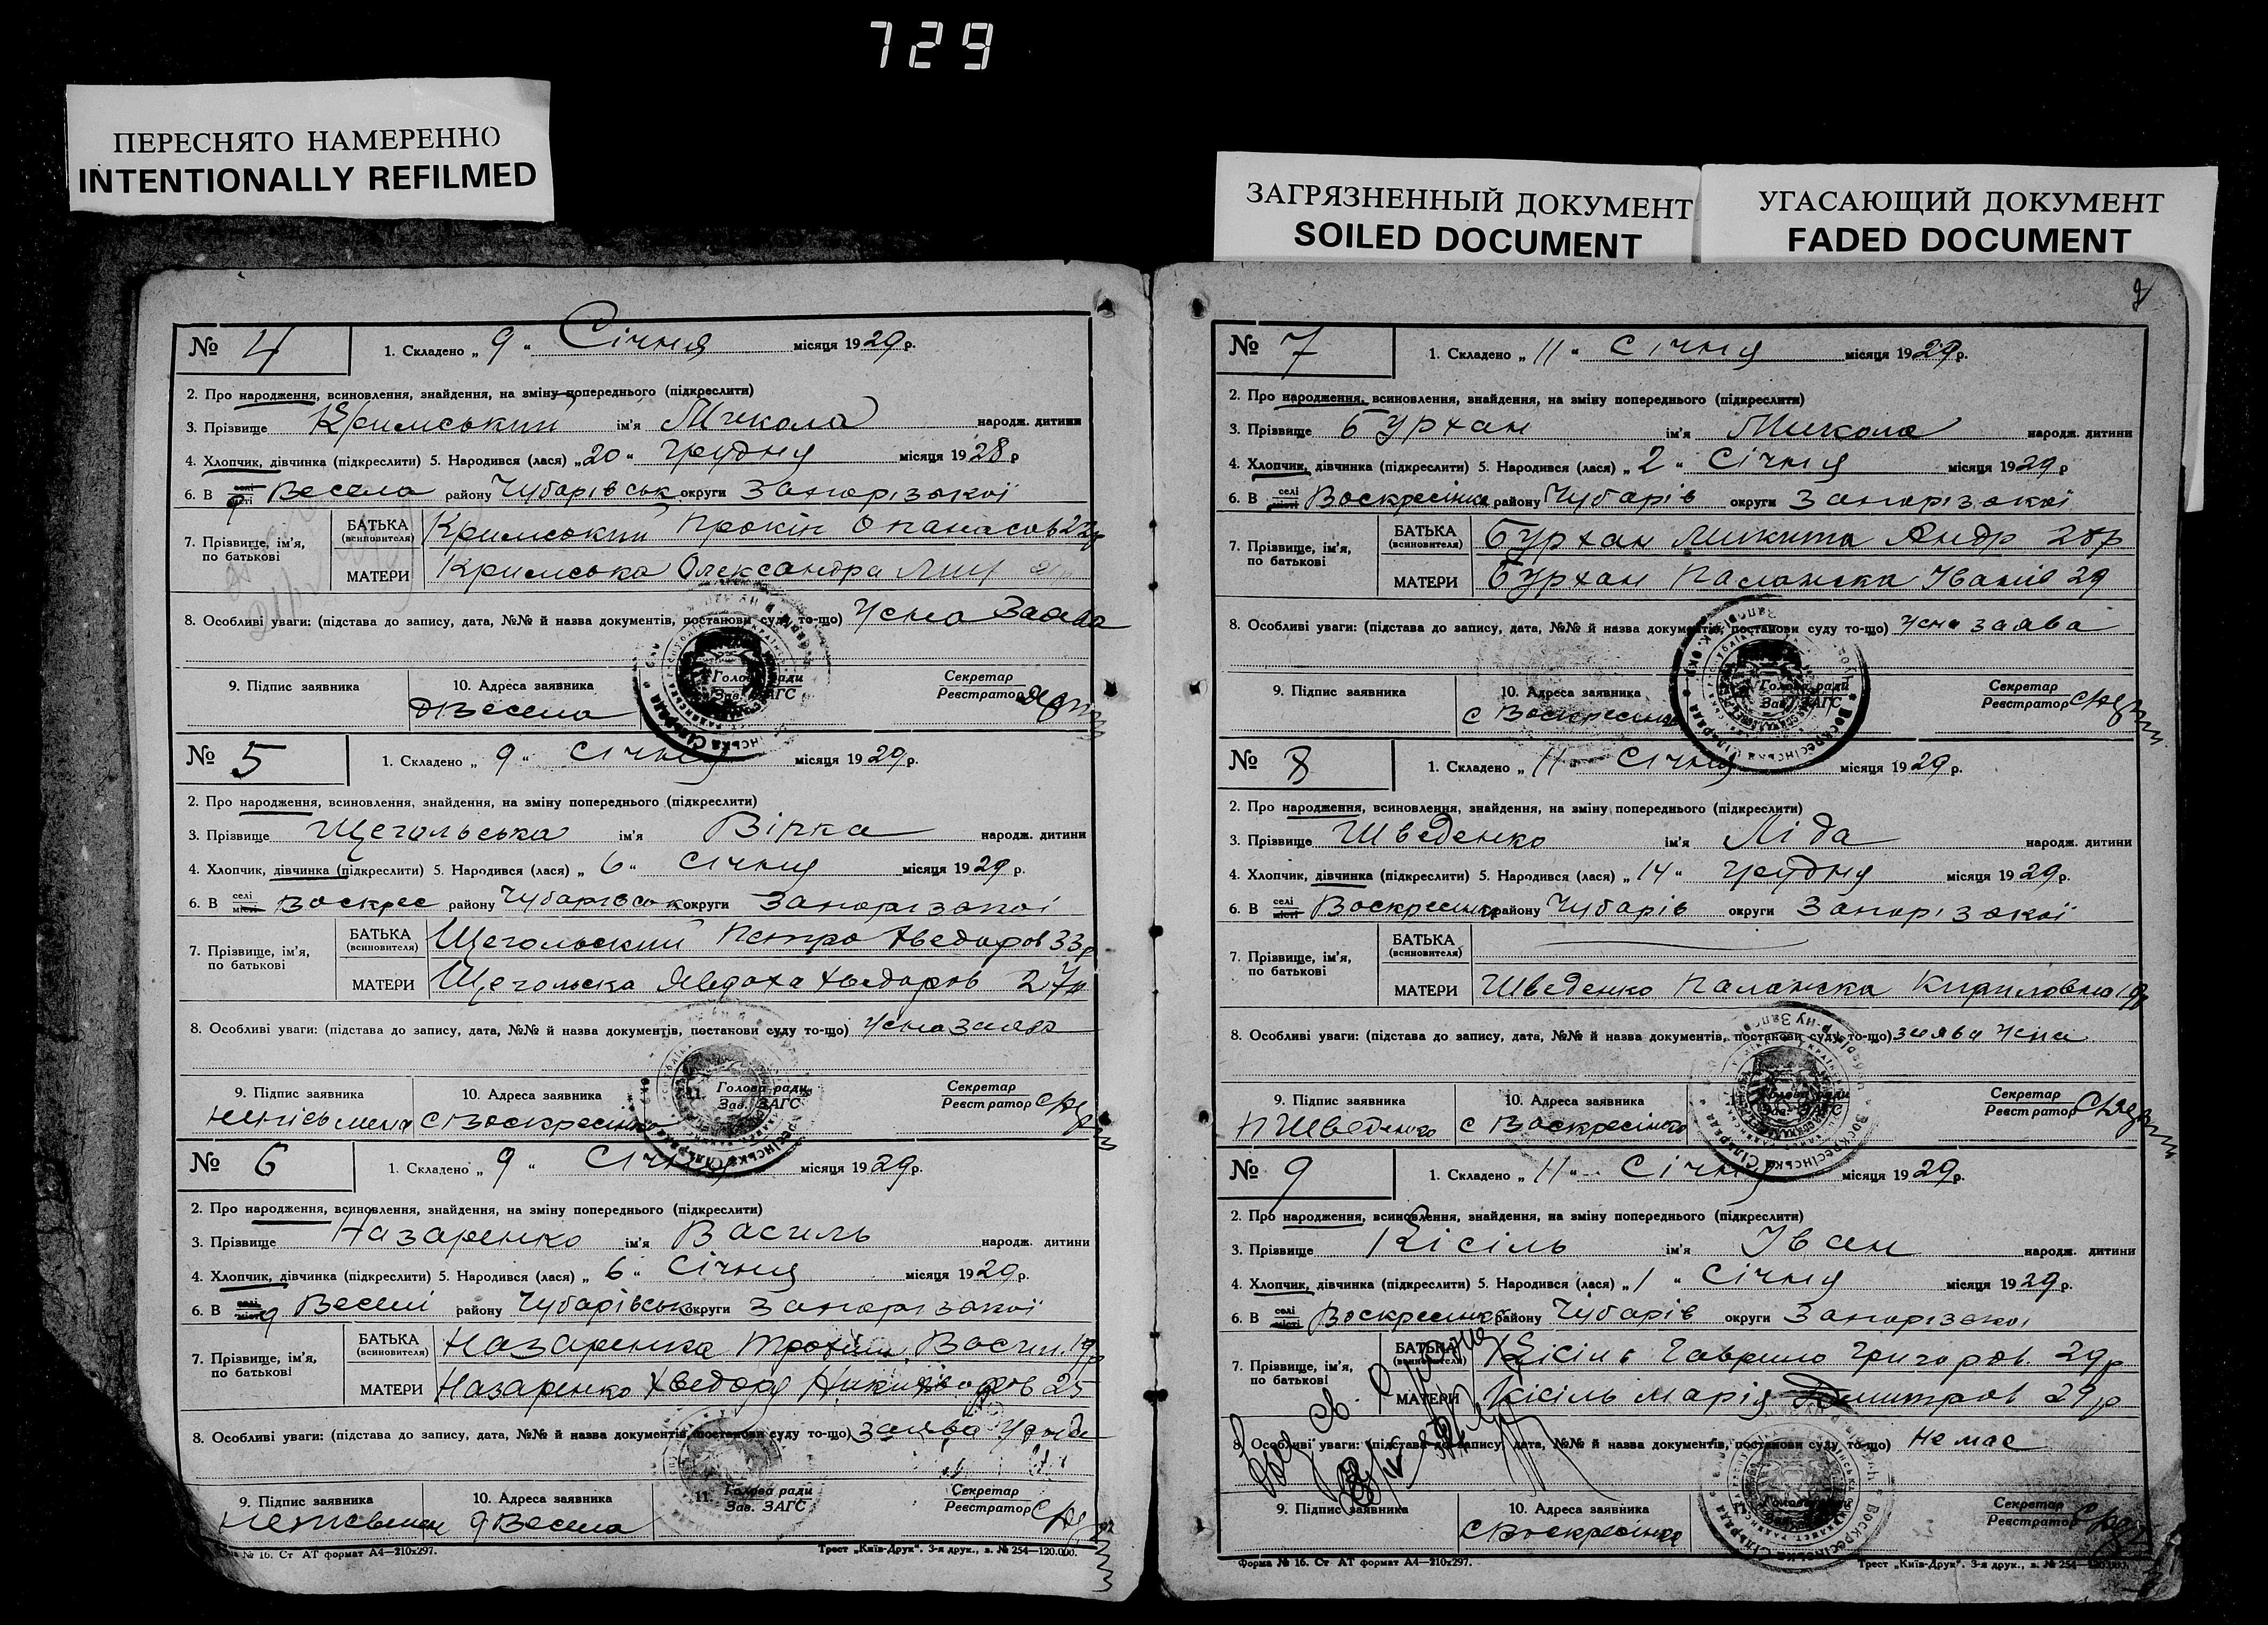 729
ПЕРЕСНЯТО НАМЕРЕННО
INTENTIONALLY REFILMED
ЗАГРЯЗНЕННЫЙ ДОКУМЕНТ
SOILED DOCUMENT
УГАСАЮЩИЙ ДОКУМЕНТ
FADED DOCUMENT
№ 4
1. Складено „ 9 “ Січня місяця 1929 р.
2. Про народження, всиновлення, знайдення, на зміну попереднього (підкреслити)
3. Прізвище Кримський ім'я Микола народж. дитини
4. Хлопчик, дівчинка (підкреслити) 5. Народився (лася) „ 20 “ Грудня місяця 1928 р
6. В селі місті Весела району Чубарівськ округи Запорізької
7. Прізвище, ім'я, по батькові
БАТЬКА (всиновителя) Кримський Прокіп Опанасов
МАТЕРИ Кримська Олександра
8. Особливі уваги: (підстава до запису, дата, №№ й назва документів, постанови суду то-що) Усна Заява
9. Підпис заявника
10. Адреса заявника
Весела
Голова ради
Зав. ЗАГС
Секретар
Реєстратор
№ 5
1. Складено „ 9 “ Січня місяця 1929 р.
2. Про народження, всиновлення, знайдення, на зміну попереднього (підкреслити)
3. Прізвище Щегольська ім'я Вірка народж. дитини
4. Хлопчик, дівчинка (підкреслити) 5. Народився (лася) „ 6 “ Січня місяця 1929 р.
6. В селі місті Воскрес району Чубарівськ округи Запорізької
7. Прізвище, ім'я, по батькові
БАТЬКА (всиновителя) Щегольский Петро Хведоров 33р
МАТЕРИ Щегольска Явдоха Хведоров 27р
8. Особливі уваги: (підстава до запису, дата, №№ й назва документів, постанови суду то-що) Усна заява
9. Підпис заявника
10. Адреса заявника
с Воскресінка
11. Голова ради
Зав. ЗАГС
Секретар
Реєстратор
№ 6
1. Складено „ 9 “ Січня місяця 1929 р.
2. Про народження, всиновлення, знайдення, на зміну попереднього (підкреслити)
3. Прізвище Назаренко ім'я Василь народж. дитини
4. Хлопчик, дівчинка (підкреслити) 5. Народився (лася) „ 6 “ Січня місяця 1929 р.
6. В селі місті Веселі району Чубарівськ округи Запорізької
7. Прізвище, ім'я, по батькові
БАТЬКА (всиновителя) Назаренка Трохим Васил. 19р
МАТЕРИ Назаренко Хведора 25
8. Особливі уваги: (підстава до запису, дата, №№ й назва документів, постанови суду то-що) заява
9. Підпис заявника
10. Адреса заявника
Весела
11. Голова ради
Зав. ЗАГС
Секретар
Реєстратор
№ 16. Ст АТ формат А4—210х297.
Трест „Київ-Друк“. 3-я друк., з. № 254—120.000.
№ 7
1. Складено „ 11 “ Січня місяця 1929 р.
2. Про народження, всиновлення, знайдення, на зміну попереднього (підкреслити)
3. Прізвище Бурхан ім'я Микола народж. дитини
4. Хлопчик, дівчинка (підкреслити) 5. Народився (лася) „ 2 “ Січня місяця 1929 р
6. В селі місті Воскресінка району Чубарів округи Запорізької
7. Прізвище, ім'я, по батькові
БАТЬКА (всиновителя) Бурхан Микита Андр 28р
МАТЕРИ Бурхан Палажка Іванів 29
8. Особливі уваги: (підстава до запису, дата, №№ й назва документів, постанови суду то-що) Усна заява
9. Підпис заявника
10. Адреса заявника
с Воскресінка
Голова ради
Зав. ЗАГС
Секретар
Реєстратор
№ 8
1. Складено „ 11 “ Січня місяця 1929 р.
2. Про народження, всиновлення, знайдення, на зміну попереднього (підкреслити)
3. Прізвище Шведенко ім'я Ліда народж. дитини
4. Хлопчик, дівчинка (підкреслити) 5. Народився (лася) „ 14 “ Грудня місяця 1929 р.
6. В селі місті Воскресинка району Чубарів округи Запорізької
7. Прізвище, ім'я, по батькові
БАТЬКА (всиновителя)
МАТЕРИ Шведенко Палажка Кириловна 19р
8. Особливі уваги: (підстава до запису, дата, №№ й назва документів, постанови суду то-що) заява Усна
9. Підпис заявника
П Шведенко
10. Адреса заявника
с Воскресінка
Голова ради
Зав. ЗАГС
Секретар
Реєстратор
№ 9
1. Складено „ 11 “ Січня місяця 1929 р.
2. Про народження, всиновлення, знайдення, на зміну попереднього (підкреслити)
3. Прізвище Кісіль ім'я Іван народж. дитини
4. Хлопчик, дівчинка (підкреслити) 5. Народився (лася) „ 1 “ Січня місяця 1929 р.
6. В селі місті Воскресинка району Чубарів округи Запорізкої
7. Прізвище, ім'я, по батькові
БАТЬКА (всиновителя) Кісіль Гаврило Григоров. 29р
МАТЕРИ Кісіль Марія Дмитров 29р
8. Особливі уваги: (підстава до запису, дата, №№ й назва документів, постанови суду то-що) Не має
9. Підпис заявника
10. Адреса заявника
с Воскресінка
Голова ради
Секретар
Реєстратор
Форма № 16. Ст АТ формат А4—210х297.
Трест „Київ-Друк“. 3-я друк., з. № 254—120.000.